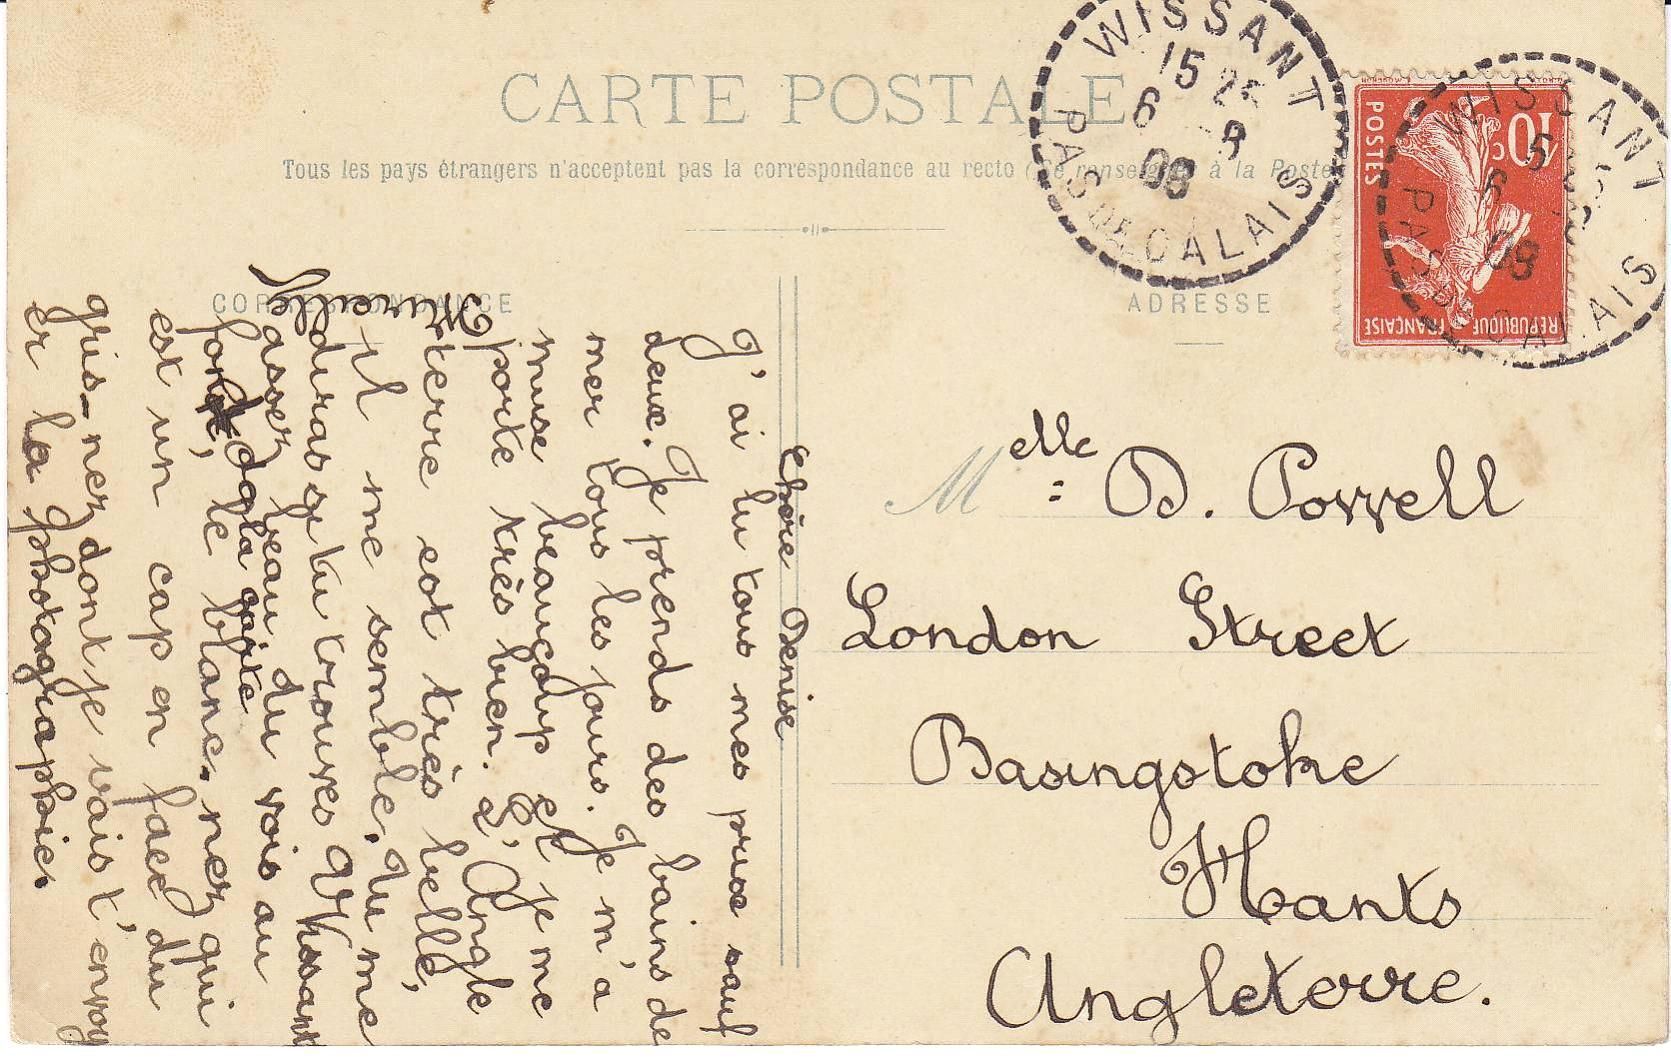 CARTE POSTALE
Tous les pays étrangers n'acceptent pas la correspondance au recto (Se renseigner à la Poste
CORRESPONDANCE
ADRESSE
WISSANT
15 25
6 - 8
08
PAS DE CALAIS
POSTES
10c
REPUBLIQUE FRANÇAISE
WISSANT
6
08
PAS DE CALAIS
Melle D. Powell
London Street
Basingstoke
Hants
Angleterre.
Chère Denise
J'ai lu tous mes prix sauf
deux. Je prends des bains de
mer tous les jours. Je m'a
muse beaucoup et je me
porte très bien. L'Angle
terre est très belle,
il me semble. Tu me
diras si tu trouves Wissant
assez beau, du vois au
fond, le blanc-nez qui
est un cap en face du
gris-nez dont je vais t'envoy
er la photographie.
d la carte
Mireille